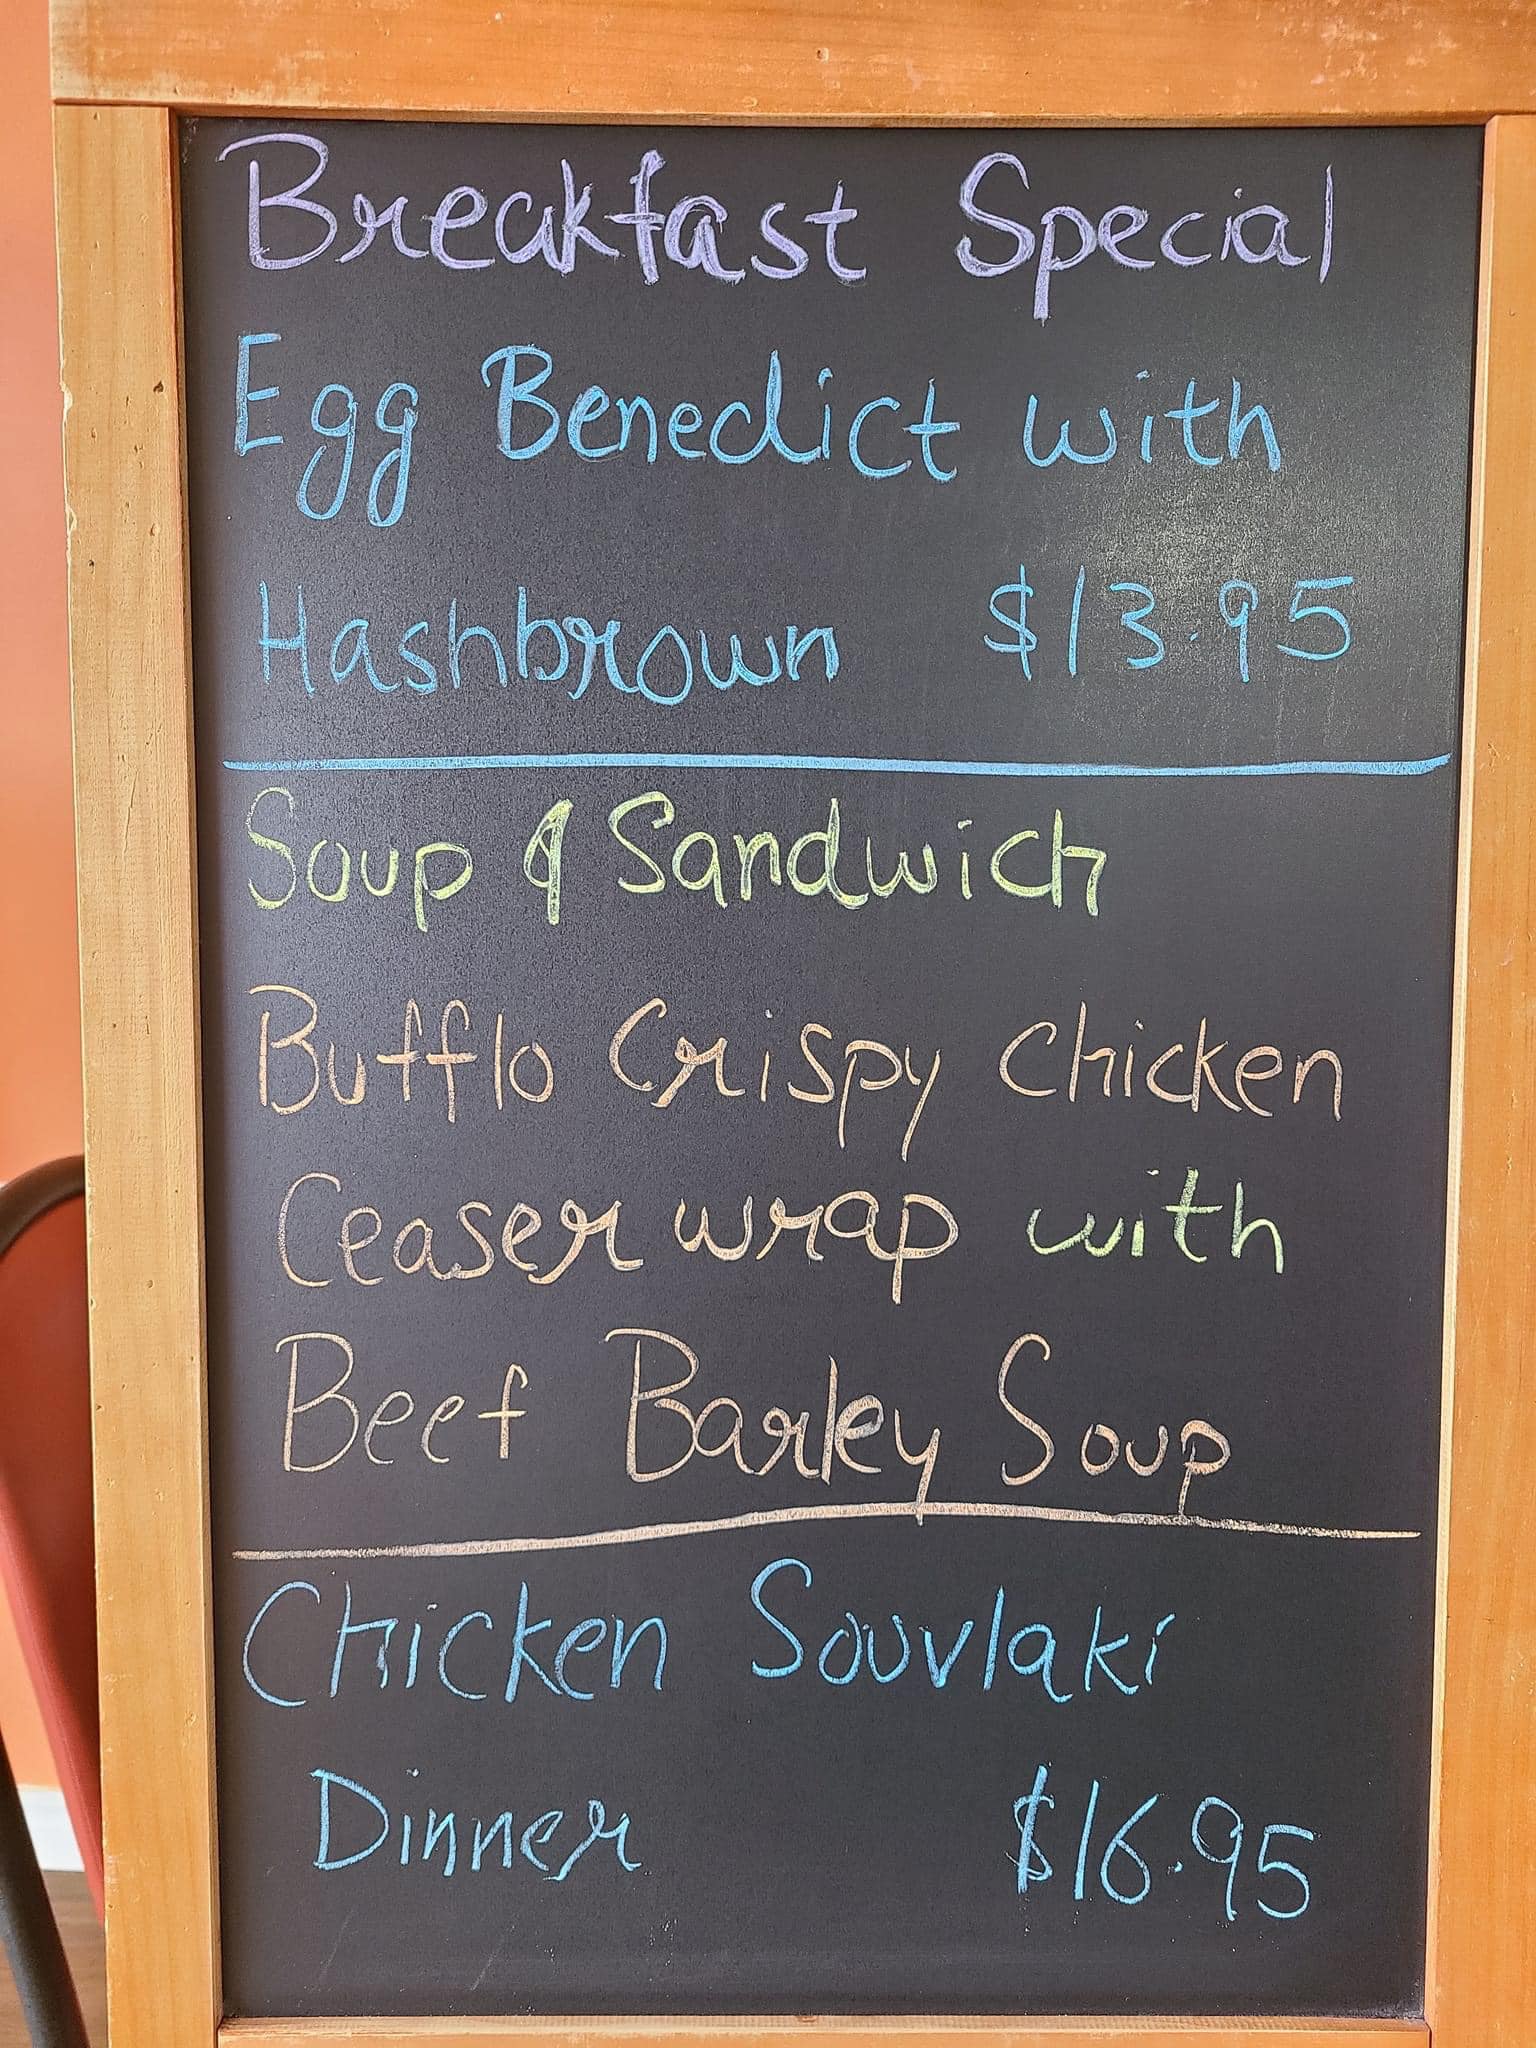 Breakfast Special
Egg Benedict with
Hashbrown $13.95
Soup & Sandwich
Bufflo Crispy Chicken
Ceaser wrap with
Beef Barley Soup
Chicken Souvlaki
Dinner $16.95